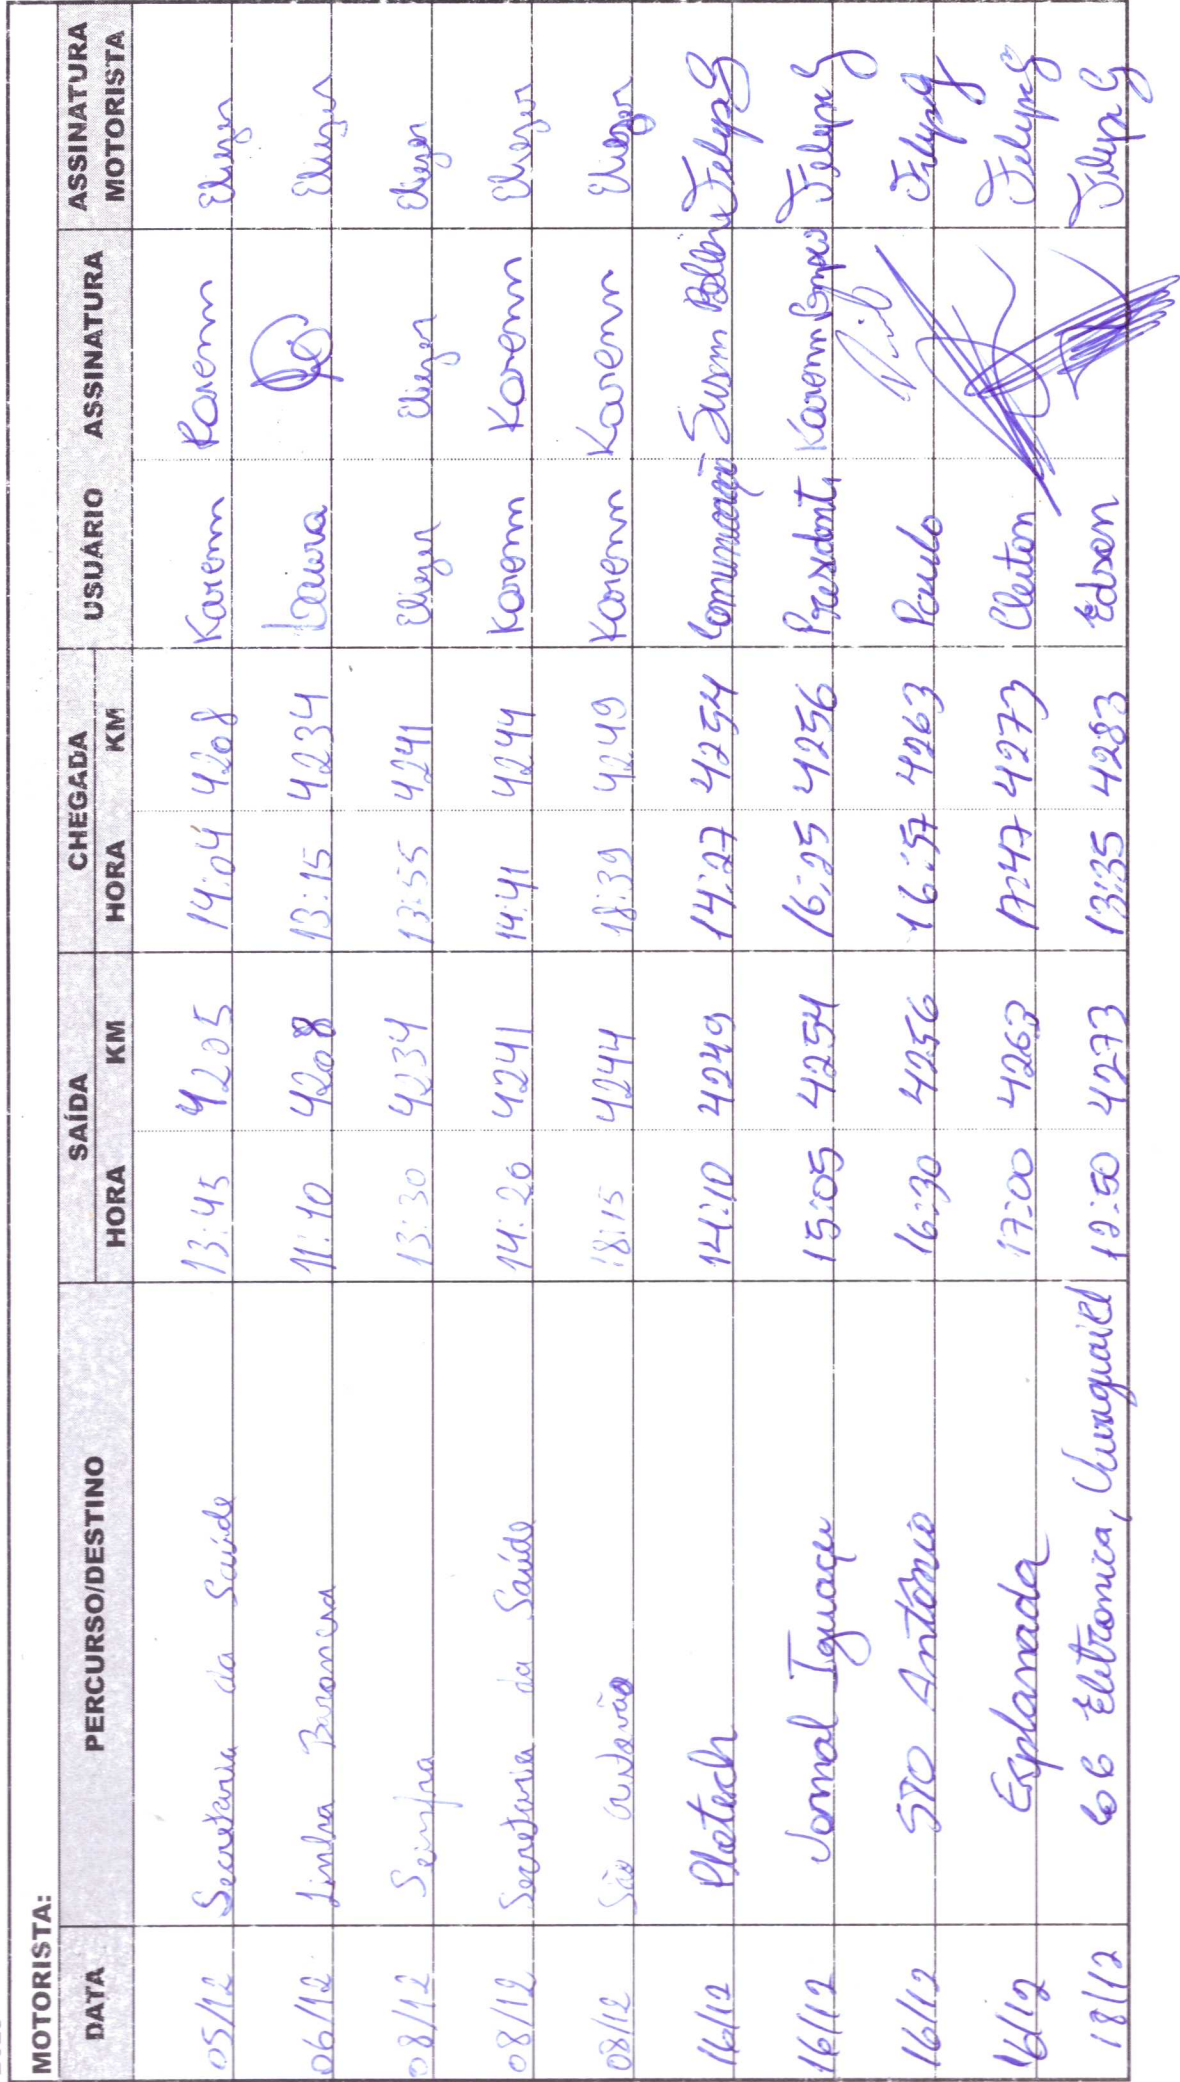 MOTORISTA:
DATA PERCURSO/DESTINO SAÍDA CHEGADA USUÁRIO ASSINATURA ASSINATURA MOTORISTA
HORA KM HORA KM
05/12 Secretaria da Saúde 13:45 4205 14:04 4208 Karenn Karenn Eliezer
06/12 Linha Baronesa 11:40 4208 13:15 4234 Laura Eliezer
08/12 Seinfra 13:30 4234 13:55 4241 Eliezer Eliezer Eliezer
08/12 Secretaria da Saúde 14:20 4241 14:41 4244 Karenn Karenn Eliezer
08/12 São Cristóvão 18:15 4244 18:39 4249 Karenn Karenn Eliezer
16/12 Plotech 14:10 4249 14:27 4254 Comunicação Susan Felype G
16/12 Jornal Iguaçu 15:05 4254 16:25 4256 Karenn Felype G
16/12 STO Antônio 16:30 4256 16:57 4263 Paulo Felype G
16/12 Esplanada 17:00 4263 17:47 4273 Cleiton Felype G
18/12 Eletronica, 12:50 4273 13:35 4283 Edson Felype G